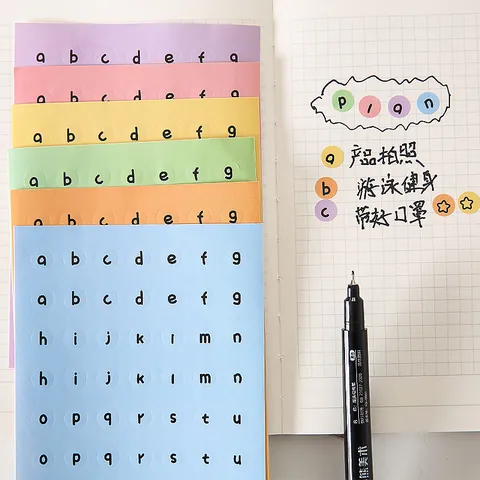 a b c d e f g
a b c d e f g
a b c d e f g
a b c d e f g
a b c d e f g
a b c d e f g
a b c d e f g
h i j k l m n
h i j k l m n
o p q r s t u
o p q r s t u
p l a n
a 产品拍照
b 游泳健身
c 带好口罩
熊美术